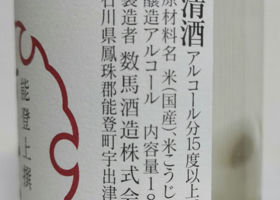 清酒
アルコール分15度以上
原材料名 米(国産)、米こうじ
醸造アルコール 内容量18
製造者 数馬酒造株式会
石川県鳳珠郡能登町宇出津
能登上撰